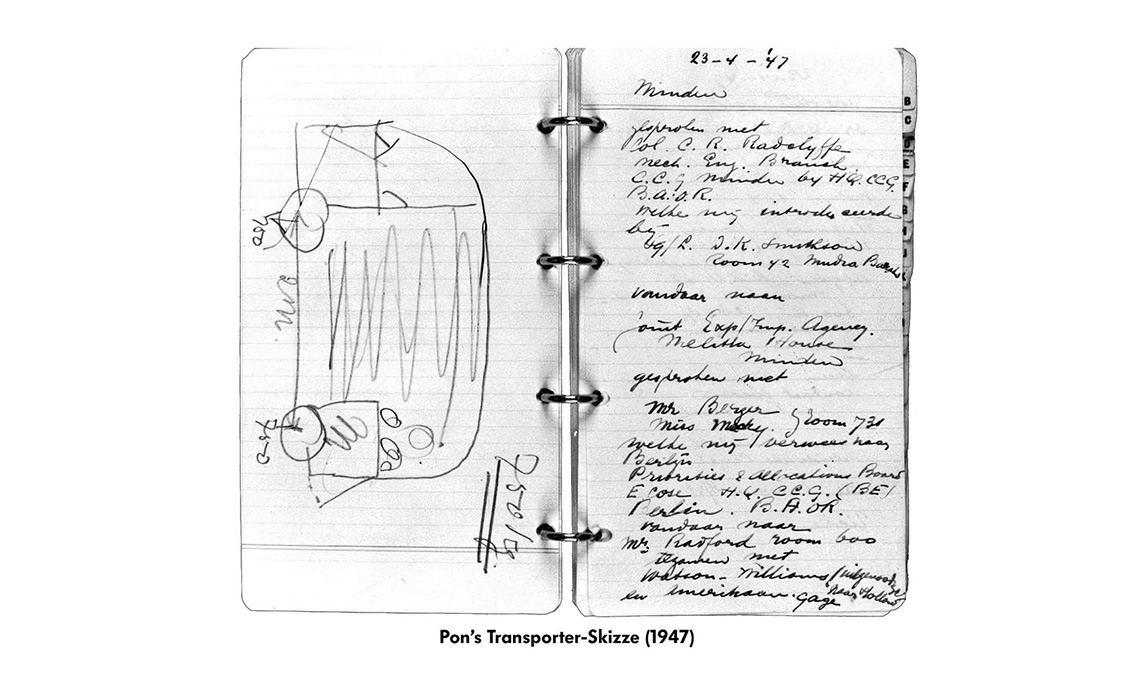 750
2 M.
750
23-4-'47
Minden
gesproken met
Col. C. R. Radclyffe
Mech. Eng. Branch
C.C.G Minden by H.Q. CCG.
B.A.O.R.
Welke mij introduceerde
bij
J.K. Smithson
Room 42
vandaar naar
Joint Exp/Imp. Agency.
Melitta House
Minden
gesproken met
Mr Berger
Miss Room 731
welke mij verwees naar
Berlijn
Priorities & Allocations Board
H.Q. C.C.G. (BE)
Berlin. B.A.O.R.
vandaar naar
Mr. Radford room 600
tezamen met
Watson-Williams
en Amerikaan. Gage
B
C
D
E
F
G
H
J
Pon's Transporter-Skizze (1947)